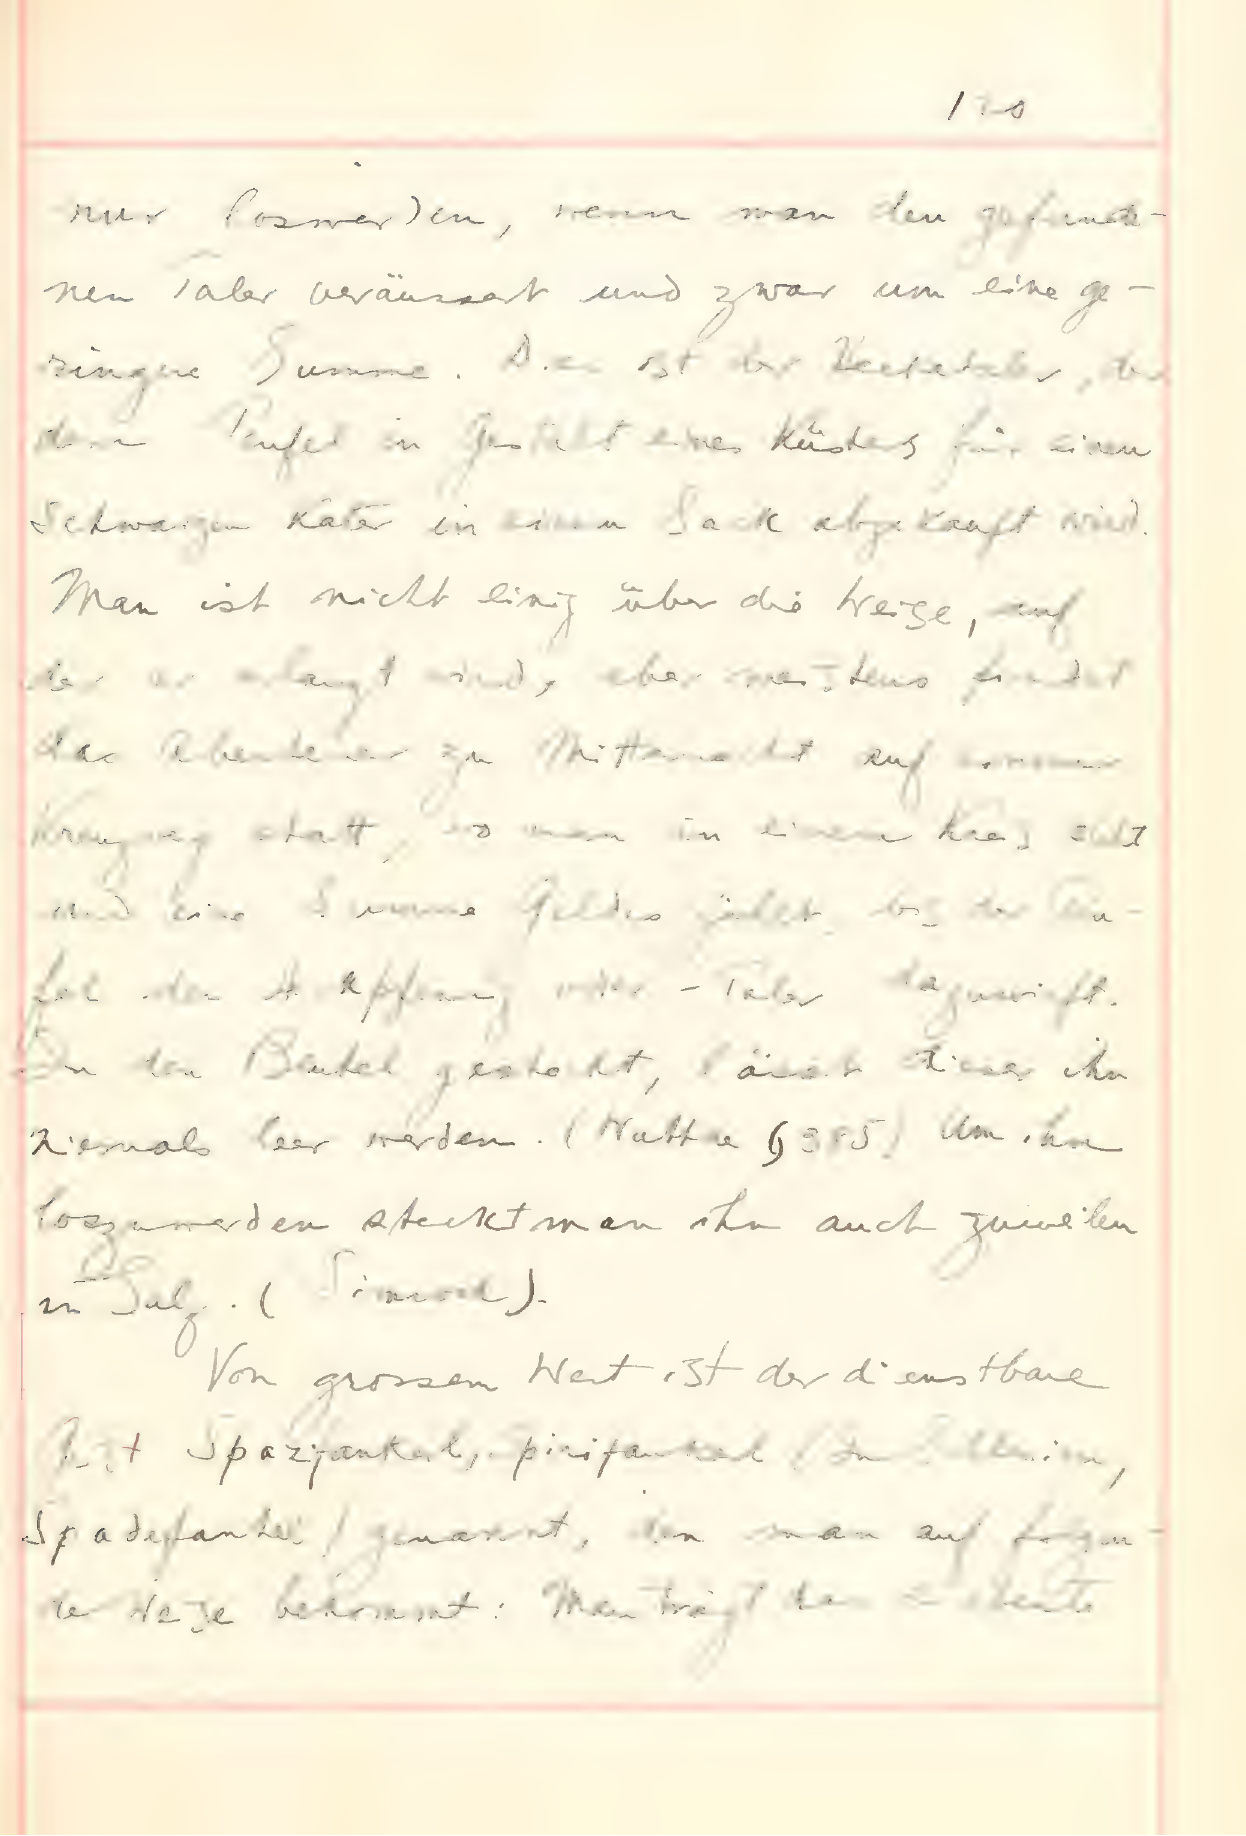 nur loswerden, wenn man den gefunde-
nen Taler veräussert und zwar um eine ge-
ringere Summe. Dies ist der Hecketaler, der
dem Teufel in Gestalt eines Küsters für einen
schwarzen Kater in einem Sack abgekauft wird.
Man ist nicht einig über die Weise, auf
der er erlangt wird, aber meistens findet
das Abenteuer zu Mitternacht auf einem
Kreuzweg statt, wo man in einem Kreis sitzt
und eine Summe Geldes zählt, bis der Teu-
fel den oder -Taler dazuwirft.
In den Beutel gesteckt, lässt dieser ihn
niemals leer werden. (Wuttke § 385) Um ihn
loszuwerden steckt man ihn auch zuweilen
in Salz. (Simrock).
Von grossem Wert ist der dienstbare
Geist Spazifankel, (In
genannt, den man auf folgen-
de Weise bekommt: Man trägt das